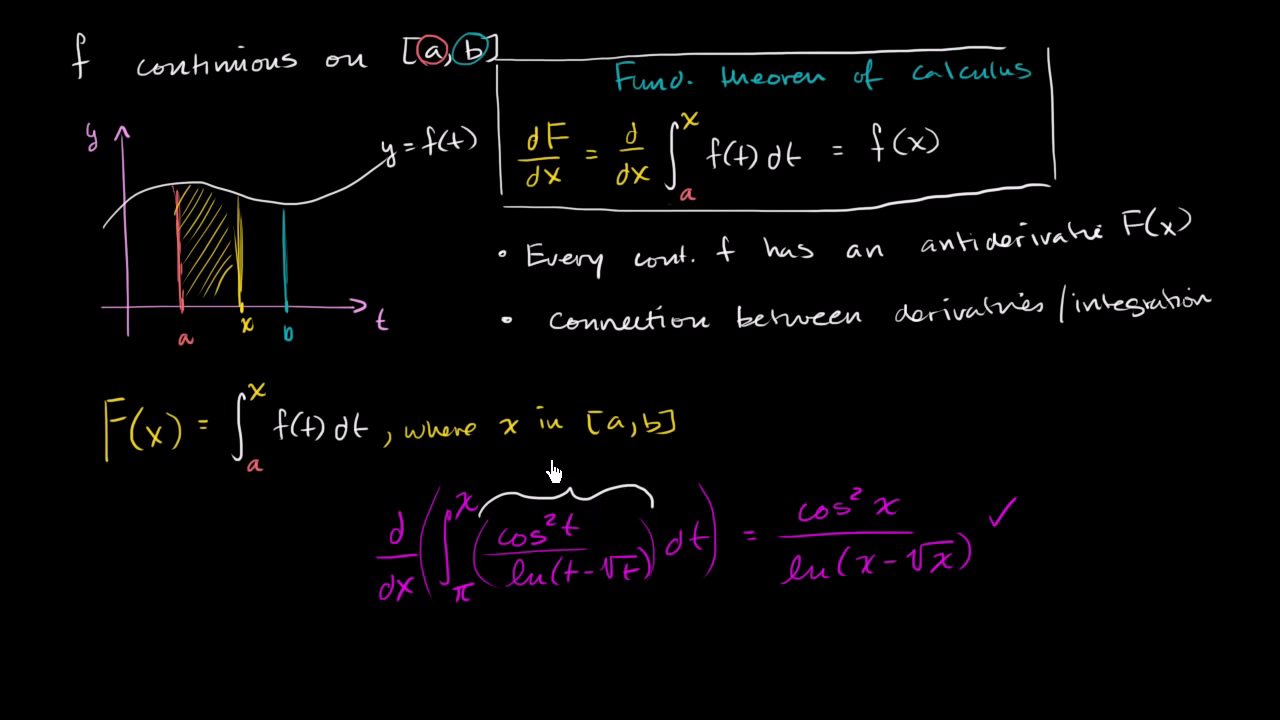 f continuous on [a, b]
Fund. theorem of calculus
dF/dx = d/dx ∫_a^x f(t) dt = f(x)
y
y = f(t)
a
x
b
t
• Every cont. f has an antiderivative F(x)
• Connection between derivatives/integration
F(x) = ∫_a^x f(t) dt, where x in [a, b]
d/dx (∫_π^x (cos²t / ln(t-√t)) dt) = cos²x / ln(x-√x) ✓